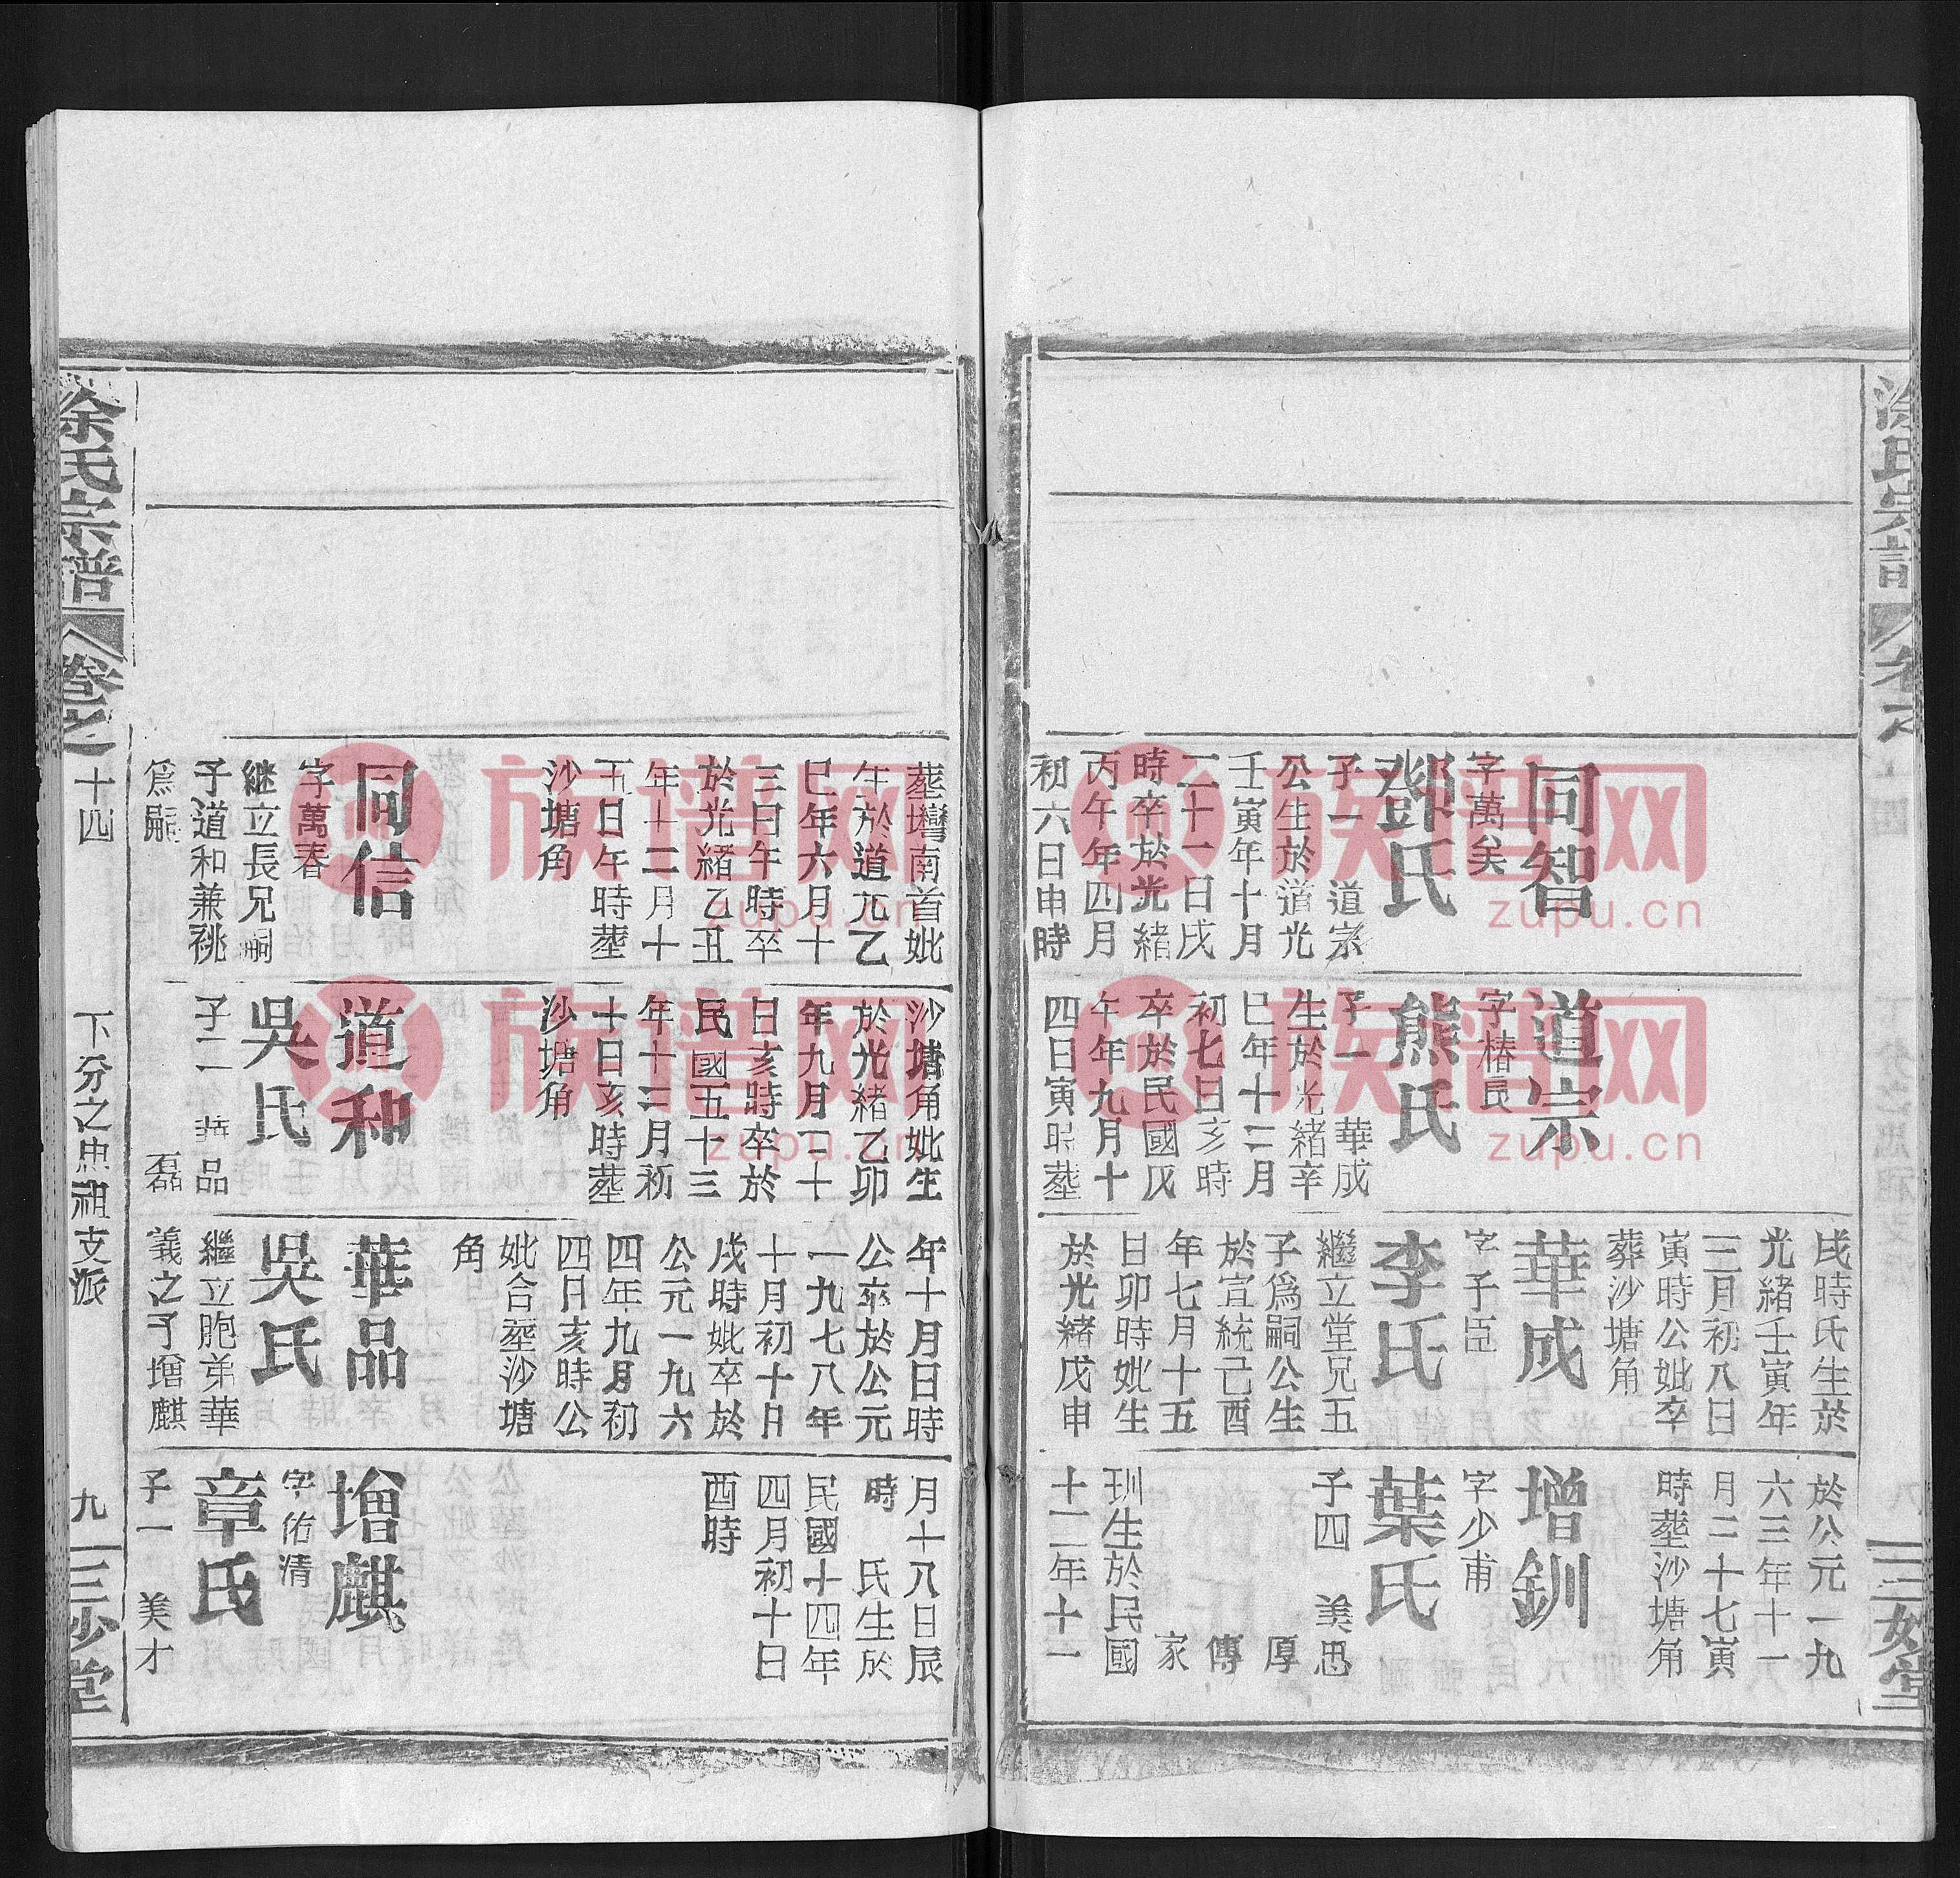 同智
字萬矣
鄧氏
子一 道宗
公生於道光
壬寅年十月
二十一日戌
時卒於光緒
丙午年四月
初六日申時
道宗
字椿長
熊氏
子一 華成
生於光緒辛
巳年十二月
初七日亥時
卒於民國戊
午年九月十
四日寅時葬
戌時氏生於
光緒壬寅年
三月初八日
寅時公妣卒
葬沙塘角
華成
字子臣
李氏
繼立堂兄五
子爲嗣公生
於宣統己酉
年七月十五
日卯時妣生
於光緒戊申
於公元一九
六三年十一
月二十七寅
時葬沙塘角
增釧
字少甫
葉氏
子四 美思
厚
傳
家
玔生於民國
十二年十一
葬塆南首妣
生於道光乙
巳年六月十
三日午時卒
於光緒乙丑
年十二月十
五日午時葬
沙塘角
同信
字萬春
継立長兄嗣
子道和兼祧
爲嗣
沙塘角妣生
於光緒乙卯
年九月二十
日亥時卒於
民國五十三
年十二月初
十日亥時葬
沙塘角
道和
吳氏
子二 華品
磊
年十月日時
公卒於公元
一九七八年
十月初十日
戌時妣卒於
公元一九六
四年九月初
四日亥時公
妣合葬沙塘
角
華品
吳氏
繼立胞弟華
義之子增麒
月十八日辰
時 氏生於
民國十四年
四月初十日
酉時
增麒
字佑清
章氏
子一 美才
涂氏宗譜 卷之十四 下分之思祖支派 九 三妙堂
族谱网
zupu.cn
族谱网
zupu.cn
族谱网
族谱网